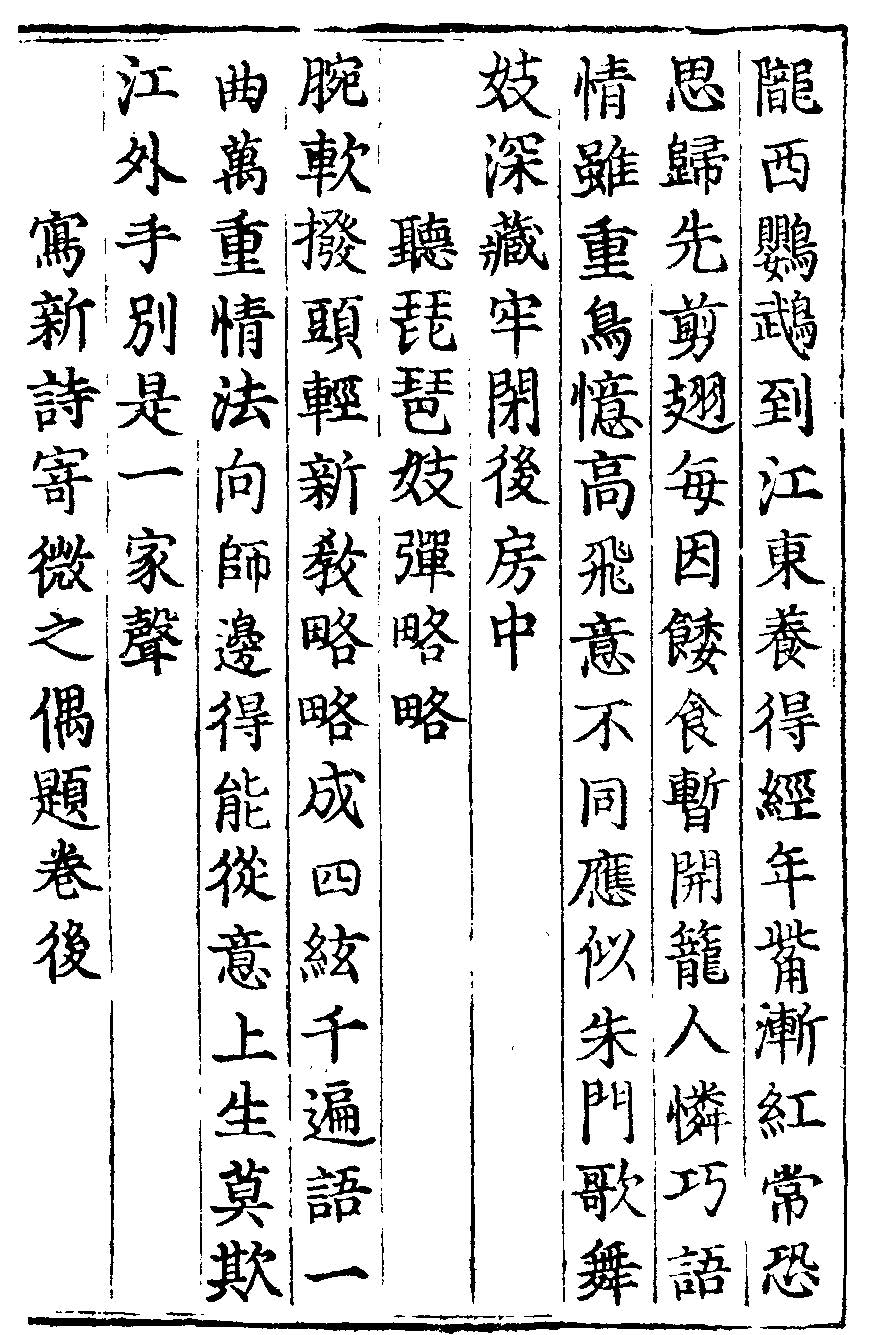 隴西鸚鵡到江東養得經年觜漸紅常恐
思歸先剪翅每因餧食暫開籠人憐巧語
情雖重鳥憶高飛意不同應似朱門歌舞
妓深藏牢閉後房中
聽琵琶妓彈略略
腕軟撥頭輕新教略略成四絃千遍語一
曲萬重情法向師邊得能從意上生莫欺
江外手別是一家聲
寫新詩寄微之偶題卷後